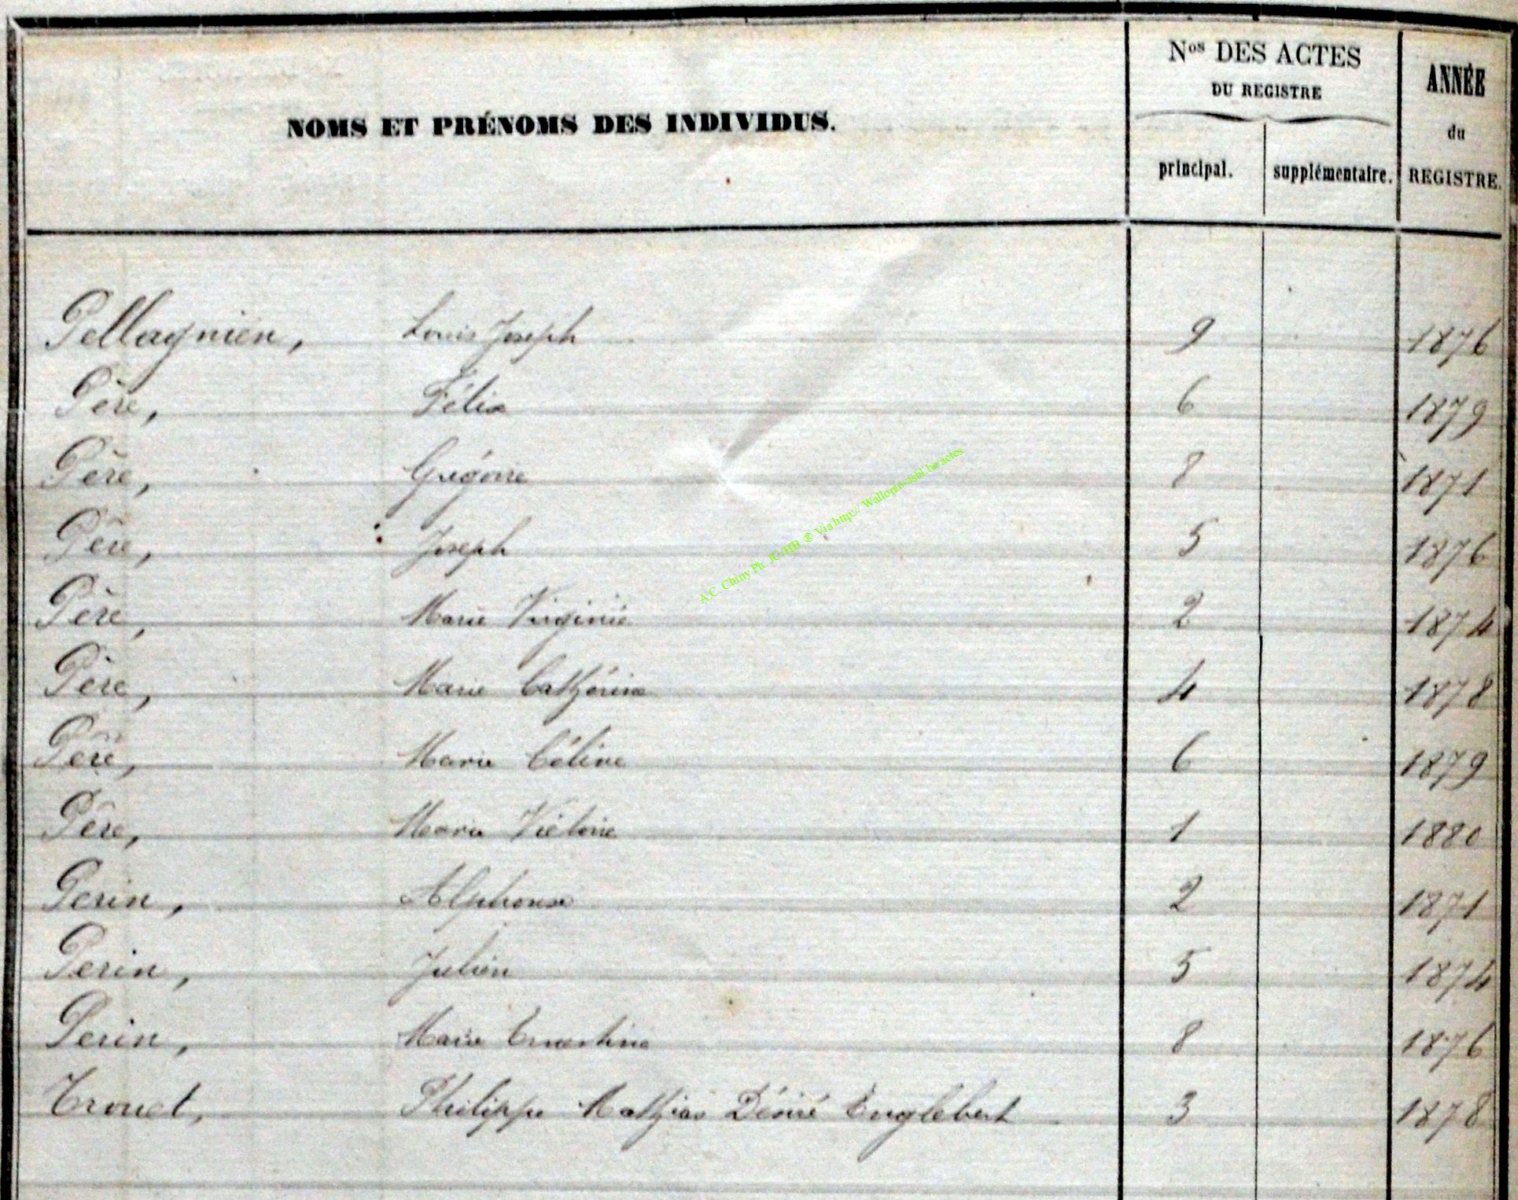 NOMS ET PRÉNOMS DES INDIVIDUS.
Nos DES ACTES
DU REGISTRE
principal.
supplémentaire.
ANNÉE
du
REGISTRE.
Pellagnien, Louis Joseph 9 1876
Père, Félix 6 1879
Père, Grégoire 8 1871
Père, Joseph 5 1876
Père, Marie Virginie 2 1874
Père, Marie Cathérine 4 1878
Père, Marie Céline 6 1879
Père, Marie Victoire 1 1880
Perin, Alphonse 2 1871
Perin, Julien 5 1874
Perin, Marie Ernestine 8 1876
Trouet, Philippe Mathias Désiré Englebert 3 1878
A.C. Chiny Ph. © Via http://